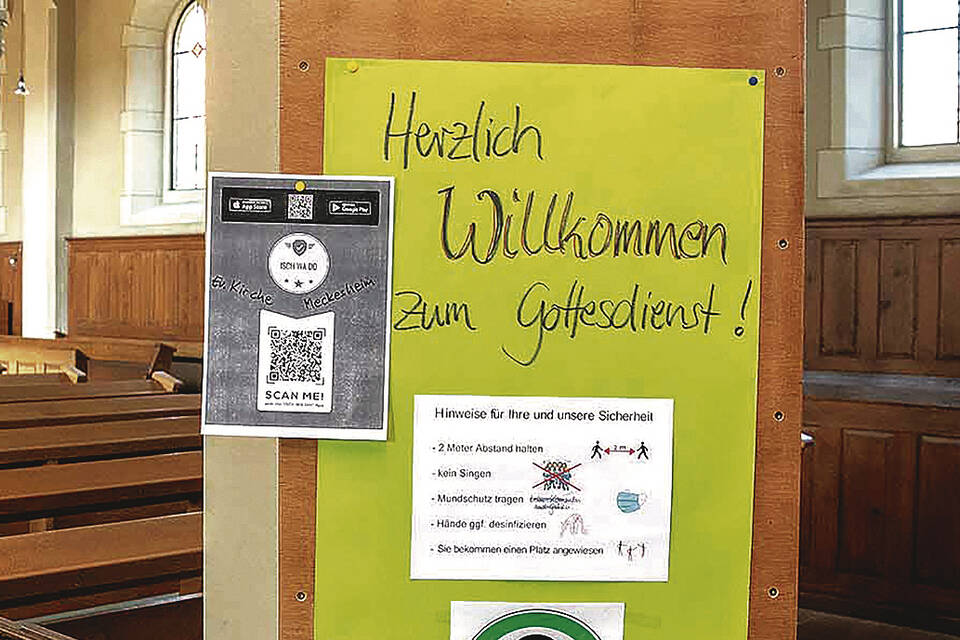 Herzlich
Willkommen
zum Gottesdienst!
App Store
Google Play
ISCH WA DO
Ev. Kirche Meckesheim
SCAN ME!
Hinweise für Ihre und unsere Sicherheit
- 2 Meter Abstand halten
2 m
- kein Singen
- Mundschutz tragen
- Hände ggf. desinfizieren
- Sie bekommen einen Platz angewiesen